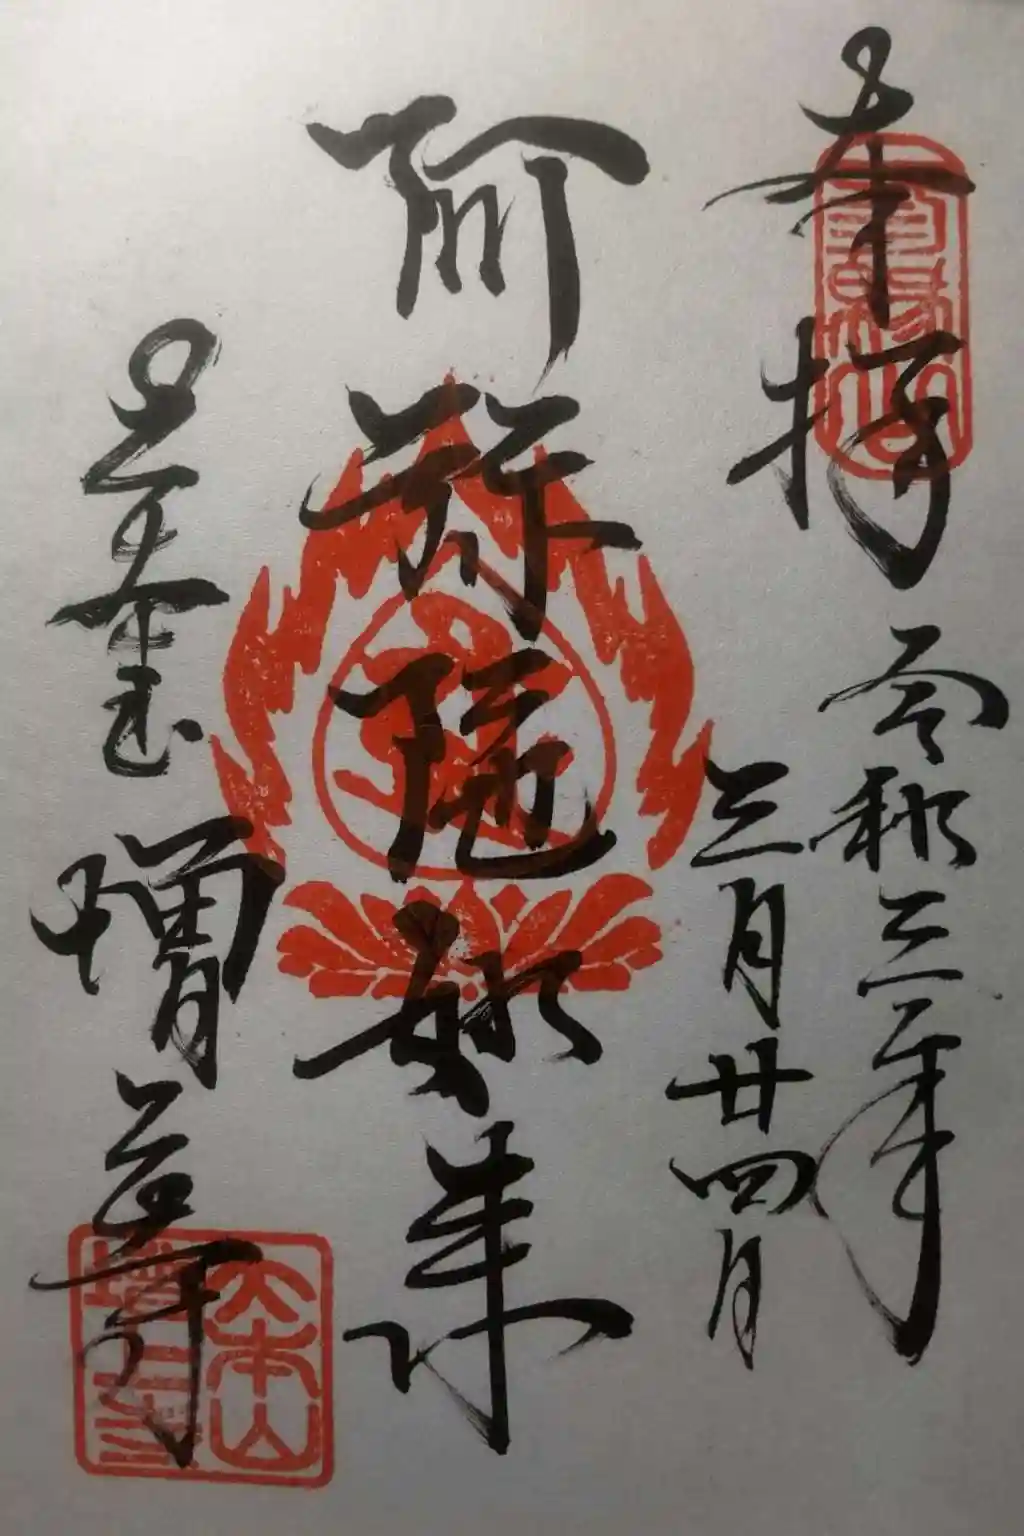 奉拝 令和三年
三月廿四日
阿弥陀如来
増上寺
大本山
増上寺